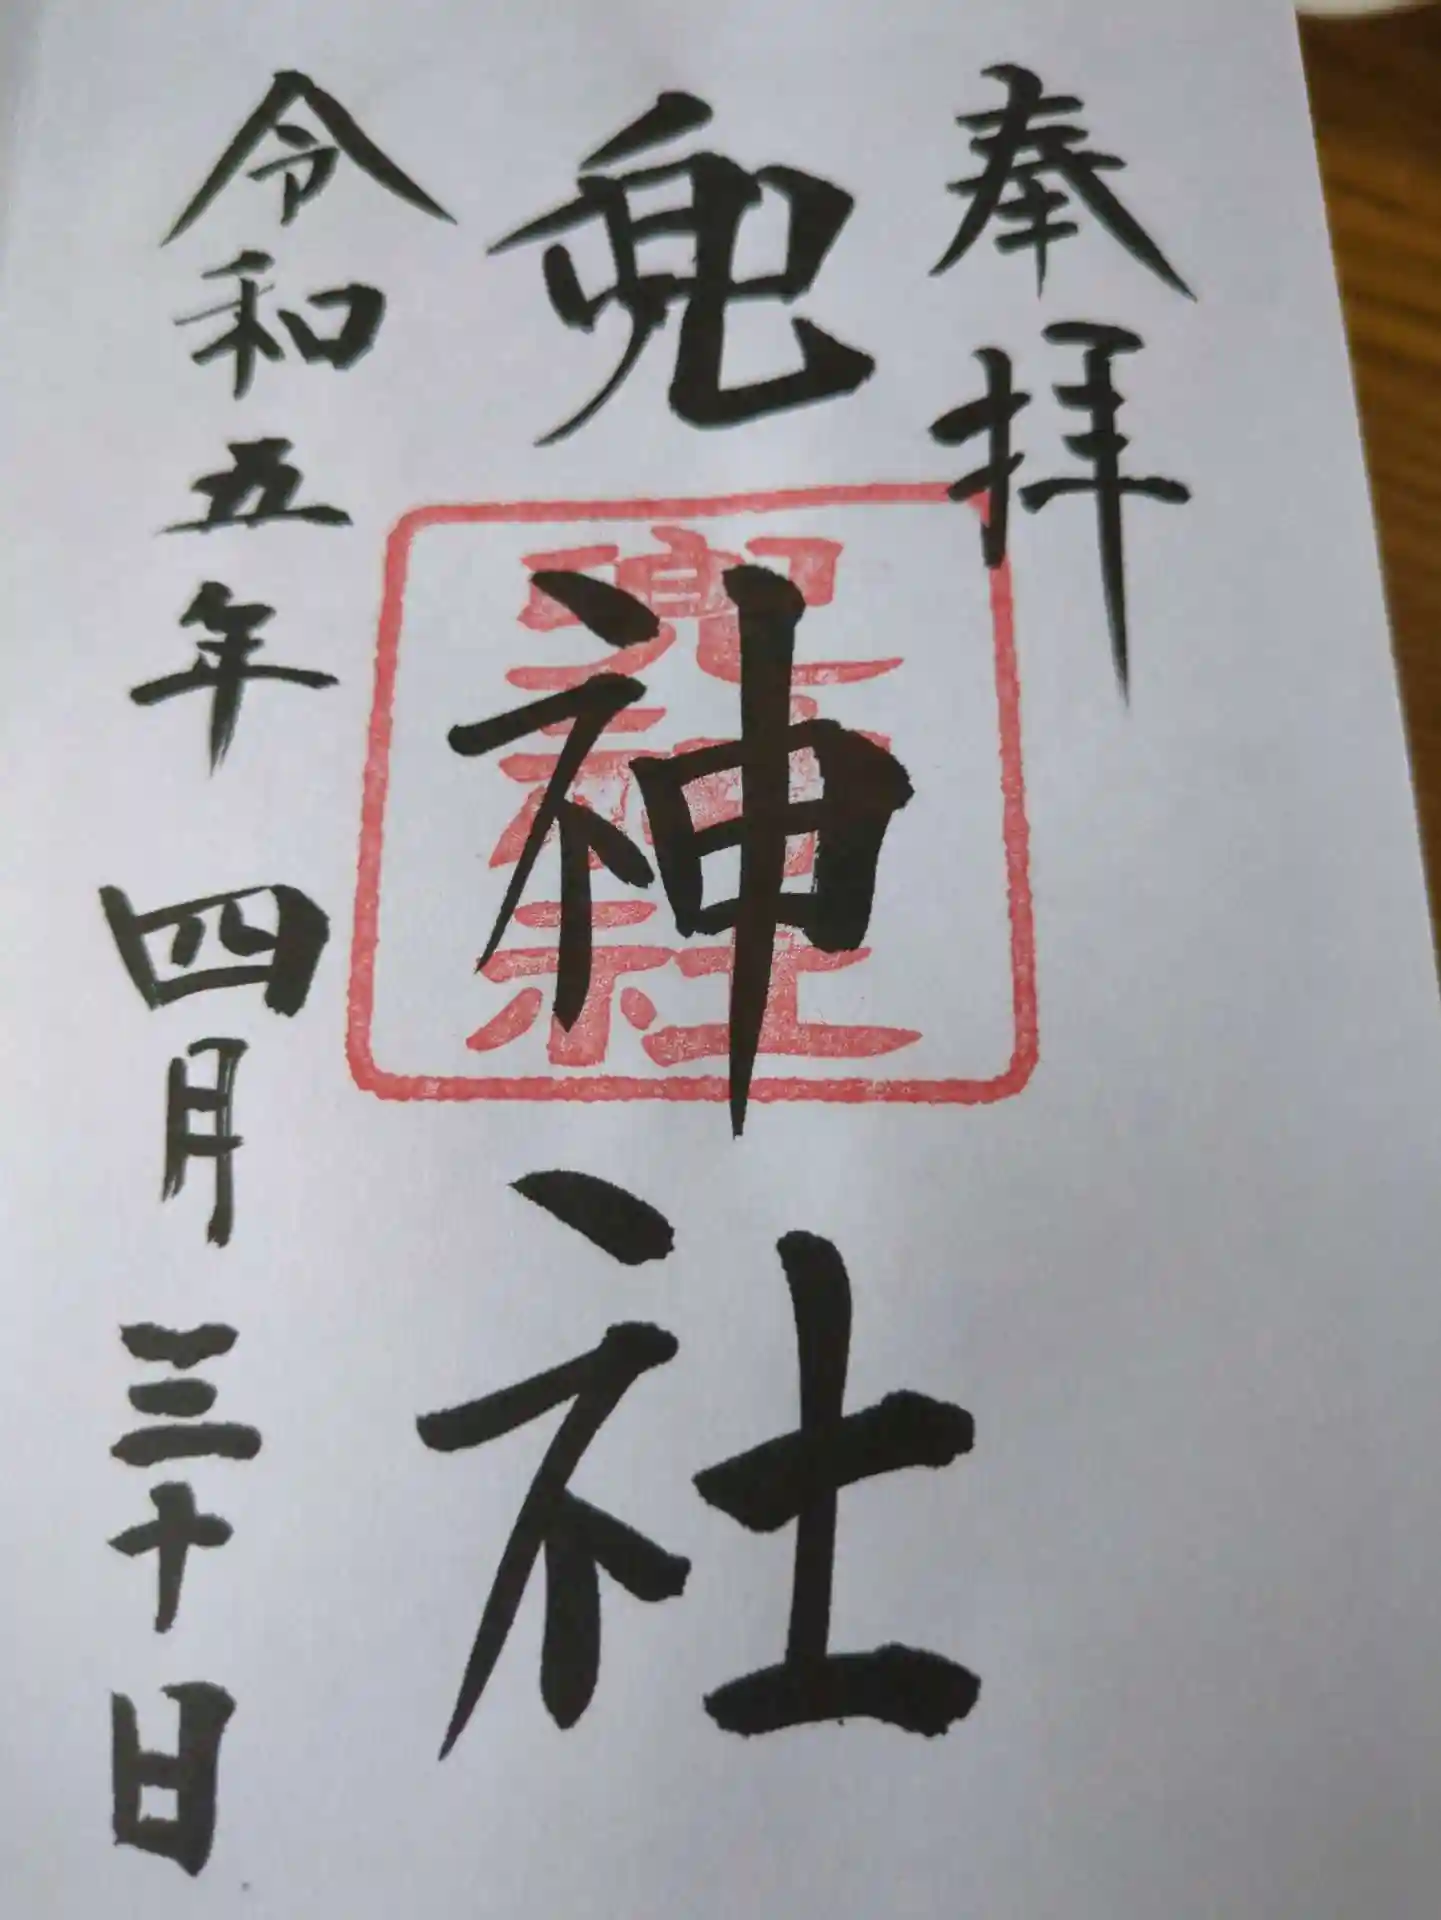 奉拝
兜神社
兜神社
令和五年四月三十日